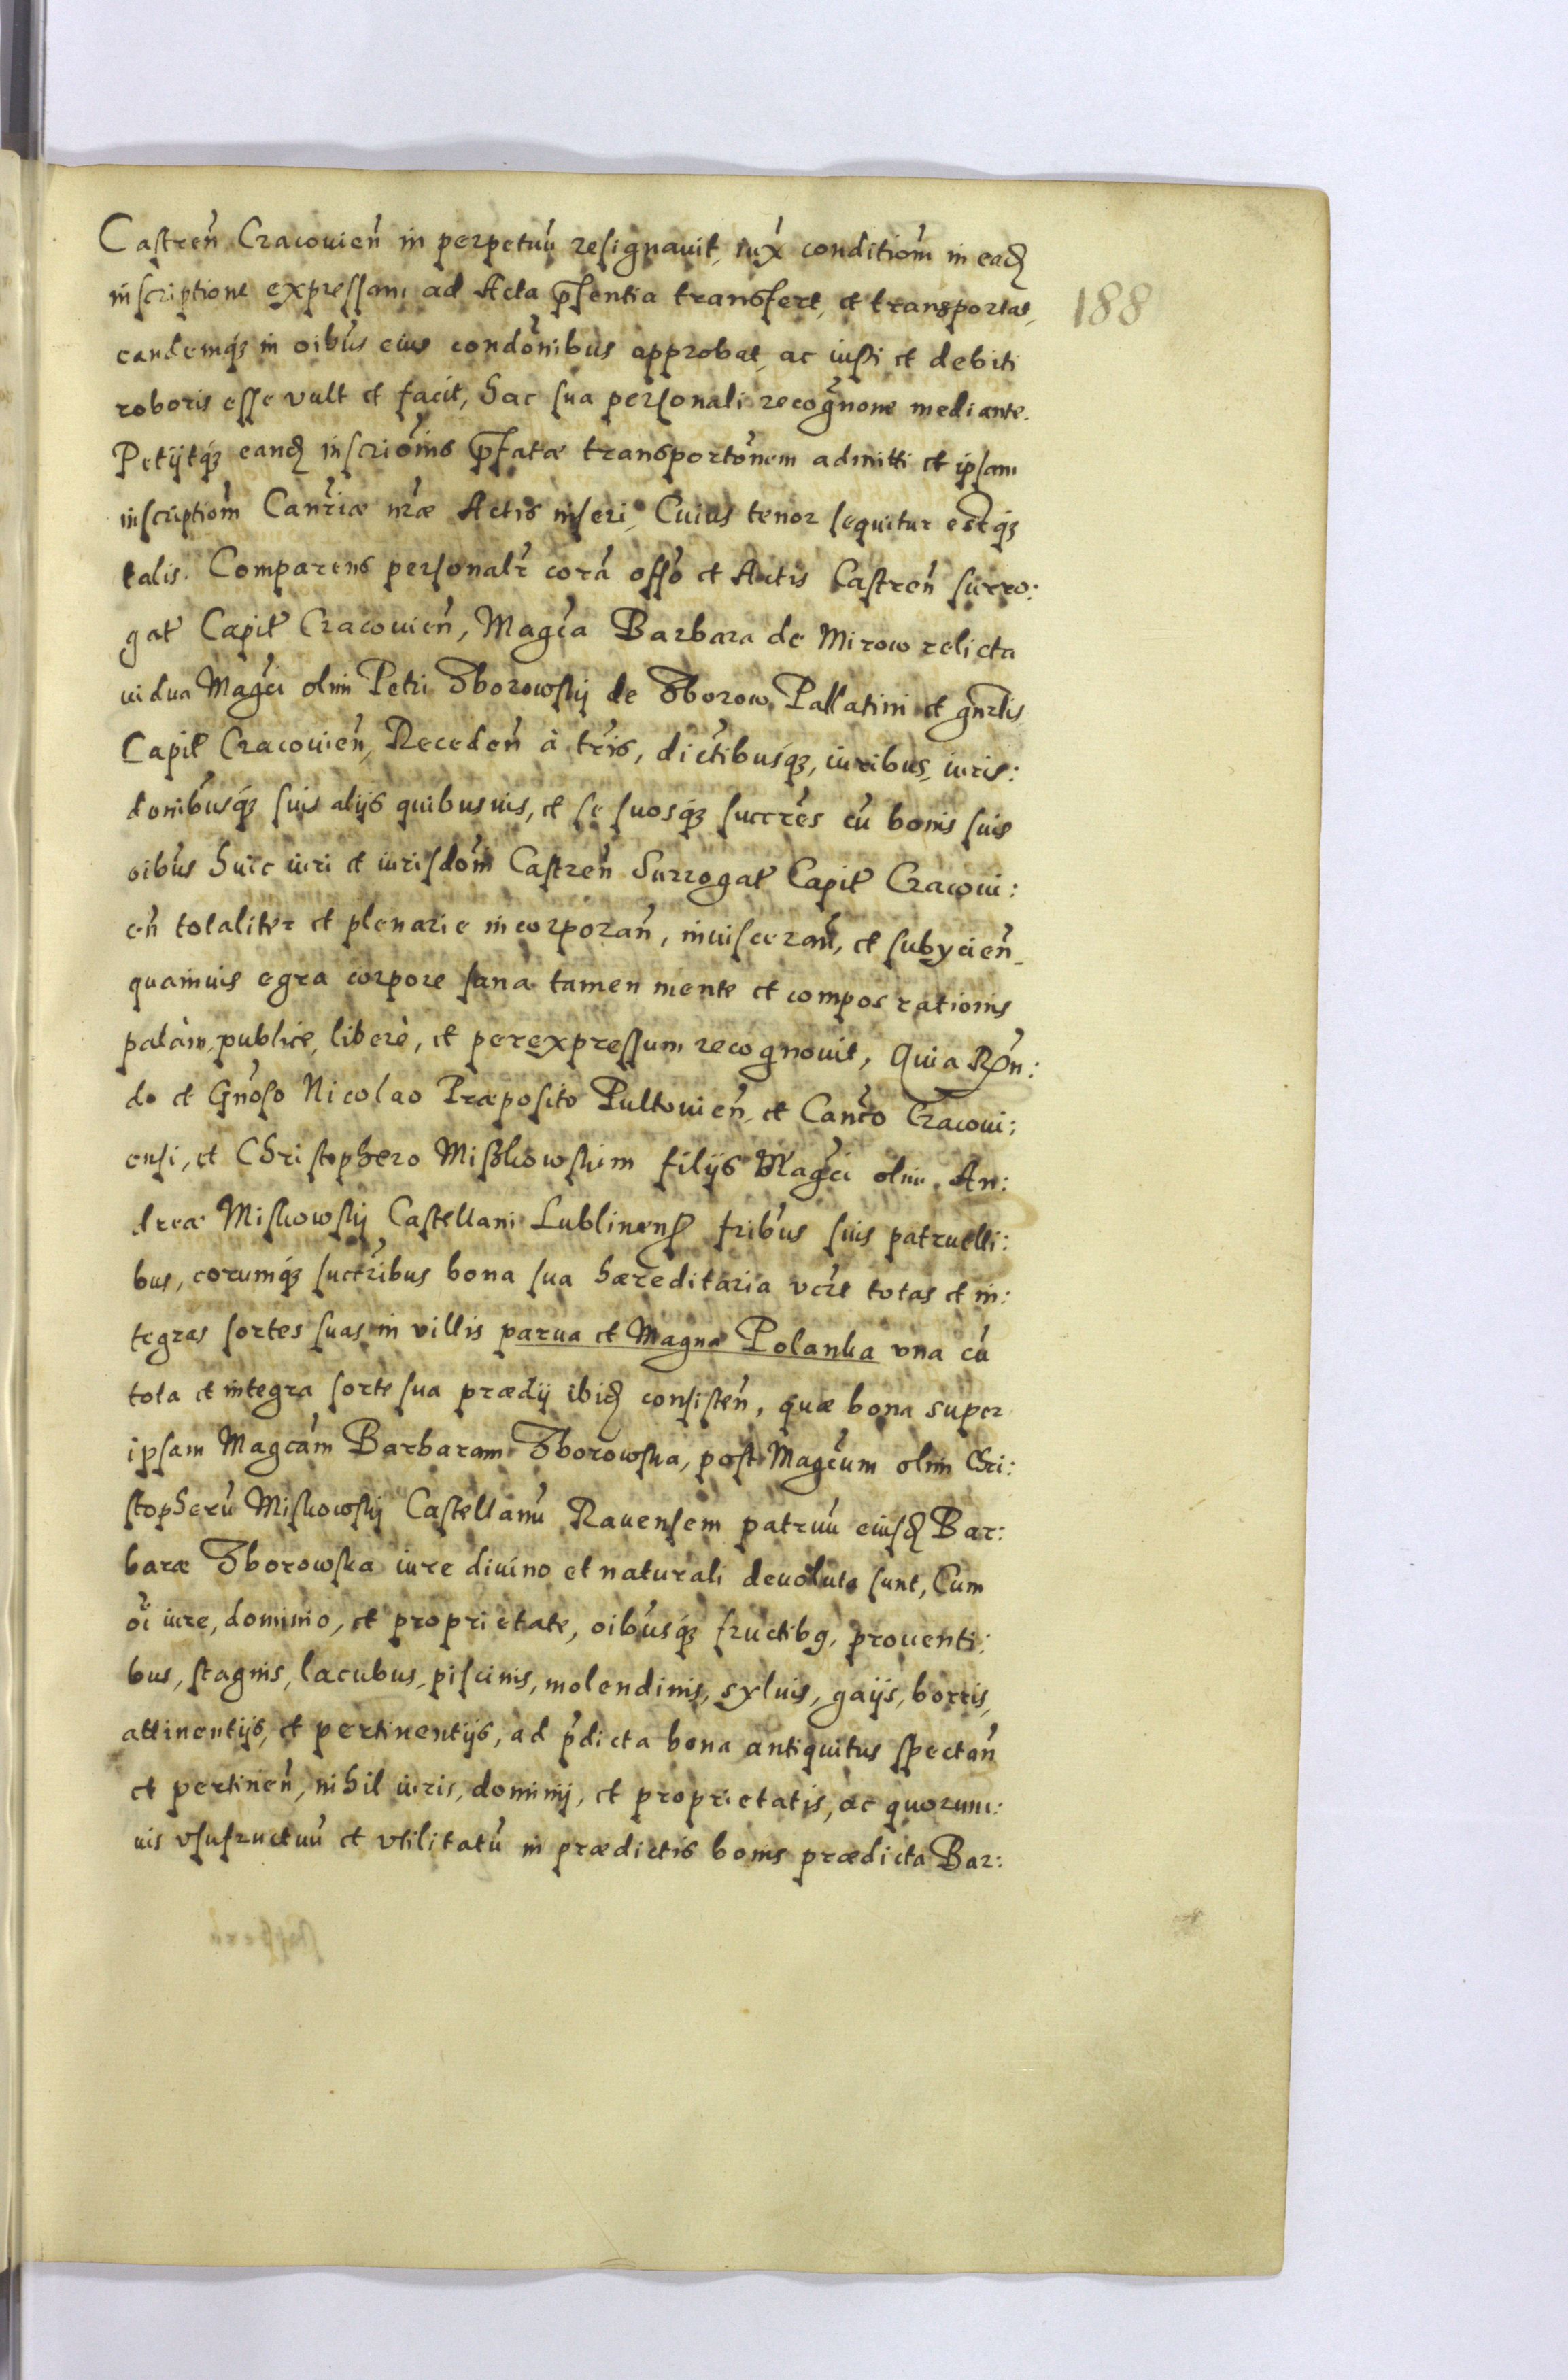 Castren̄ Cracouien̄ in perpetuū resignauit, iux̄ conditiom̄ in eadꝫ
inscriptione expressam ad Acta p̄sentia transfert, et transportat,
eandemqꝫ in oibūs eius condōnibus approbat, ac iusti et debiti
roboris esse vult et facit, hac sua personali recogn̄one mediante.
Petijtqꝫ eandꝫ inscriōnis p̄fatæ transportōnem admitti et ipsam
inscriptiom̄ Canr̄iæ nr̄æ Actis inseri, Cuius tenor sequitur estqꝫ
talis. Comparens personalr̄ corā offō et Actis Castren̄ surro:
gat̄ Capit̄ Cracouien̄, Magc̄a Barbara de Mirow relicta
uidua Magc̄i olim Petri Zborowskij de Zborow, Pallatini et gnr̄lis,
Capit̄ Cracouien̄, Receden̄ à tr̄is, dictībusqꝫ, iuribus, iuris:
donībusqꝫ suis alijs quibusuis, et se suosqꝫ succr̄es cū bonis suis
oibūs huic iuri et iurisdom̄ Castren̄ Surrogat̄ Capit̄ Cracoui:
en̄ totaliter et plenarie incorporan̄, inuisceran̄, et subycien̄
quamuis egra corpore sana tamen mente et compos rationis
palàm, publicè, liberè, et perexpressum recognouit, Quia Rn̄:
do et Gn̄oso Nicolao Præposito Pultouien̄, et Canc̄o Cracoui:
ensi, et Christophero Mißkowskim filijs Magc̄i olim An:
dreæ Miskowskij Castellani Lublinens̄ fr̄ibus suis patruelli:
bus, eorumqꝫ succr̄ibus bona sua hæreditaria vel̄ totas et in:
tegras sortes suas in villis parua et Magna Polanka vna cū
tota et integra sorte sua prædij ibidꝫ consisten̄, quæ bona super
ipsam Magcām Barbaram Zborowska, post Magc̄um olim Chri:
stopherū Miskowskij Castellanū Rauensem patruū eiusdꝫ Bar:
baræ Zborowska iure diuino et naturali deuoluta sunt, Cum
oī iure, dominio, et proprietate, oibūsqꝫ fructibꝯ, prouenti:
bus, stagnis, lacubus, piscinis, molendinis, syluis, gaijs, borris,
attinentijs, et pertinentijs, ad p̄dicta bona antiquitus spectan̄
et pertinen̄, nihil iuris, dominij, et proprietatis, ac quorum:
uis vsufructuū et vtilitatū in prædictis bonis prædicta Bar:
188